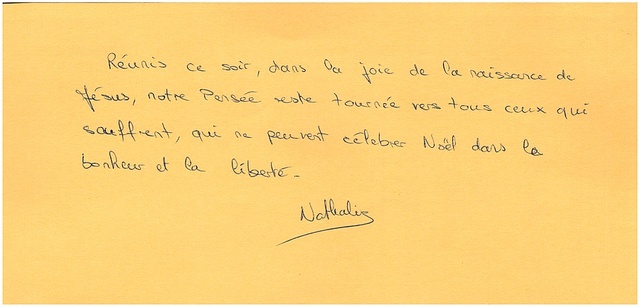 Réunis ce soir, dans la joie de la naissance de
Jésus, notre Pensée reste tournée vers tous ceux qui
souffrent, qui ne peuvent célébrer Noël dans le
bonheur et la liberté.
Nathalie